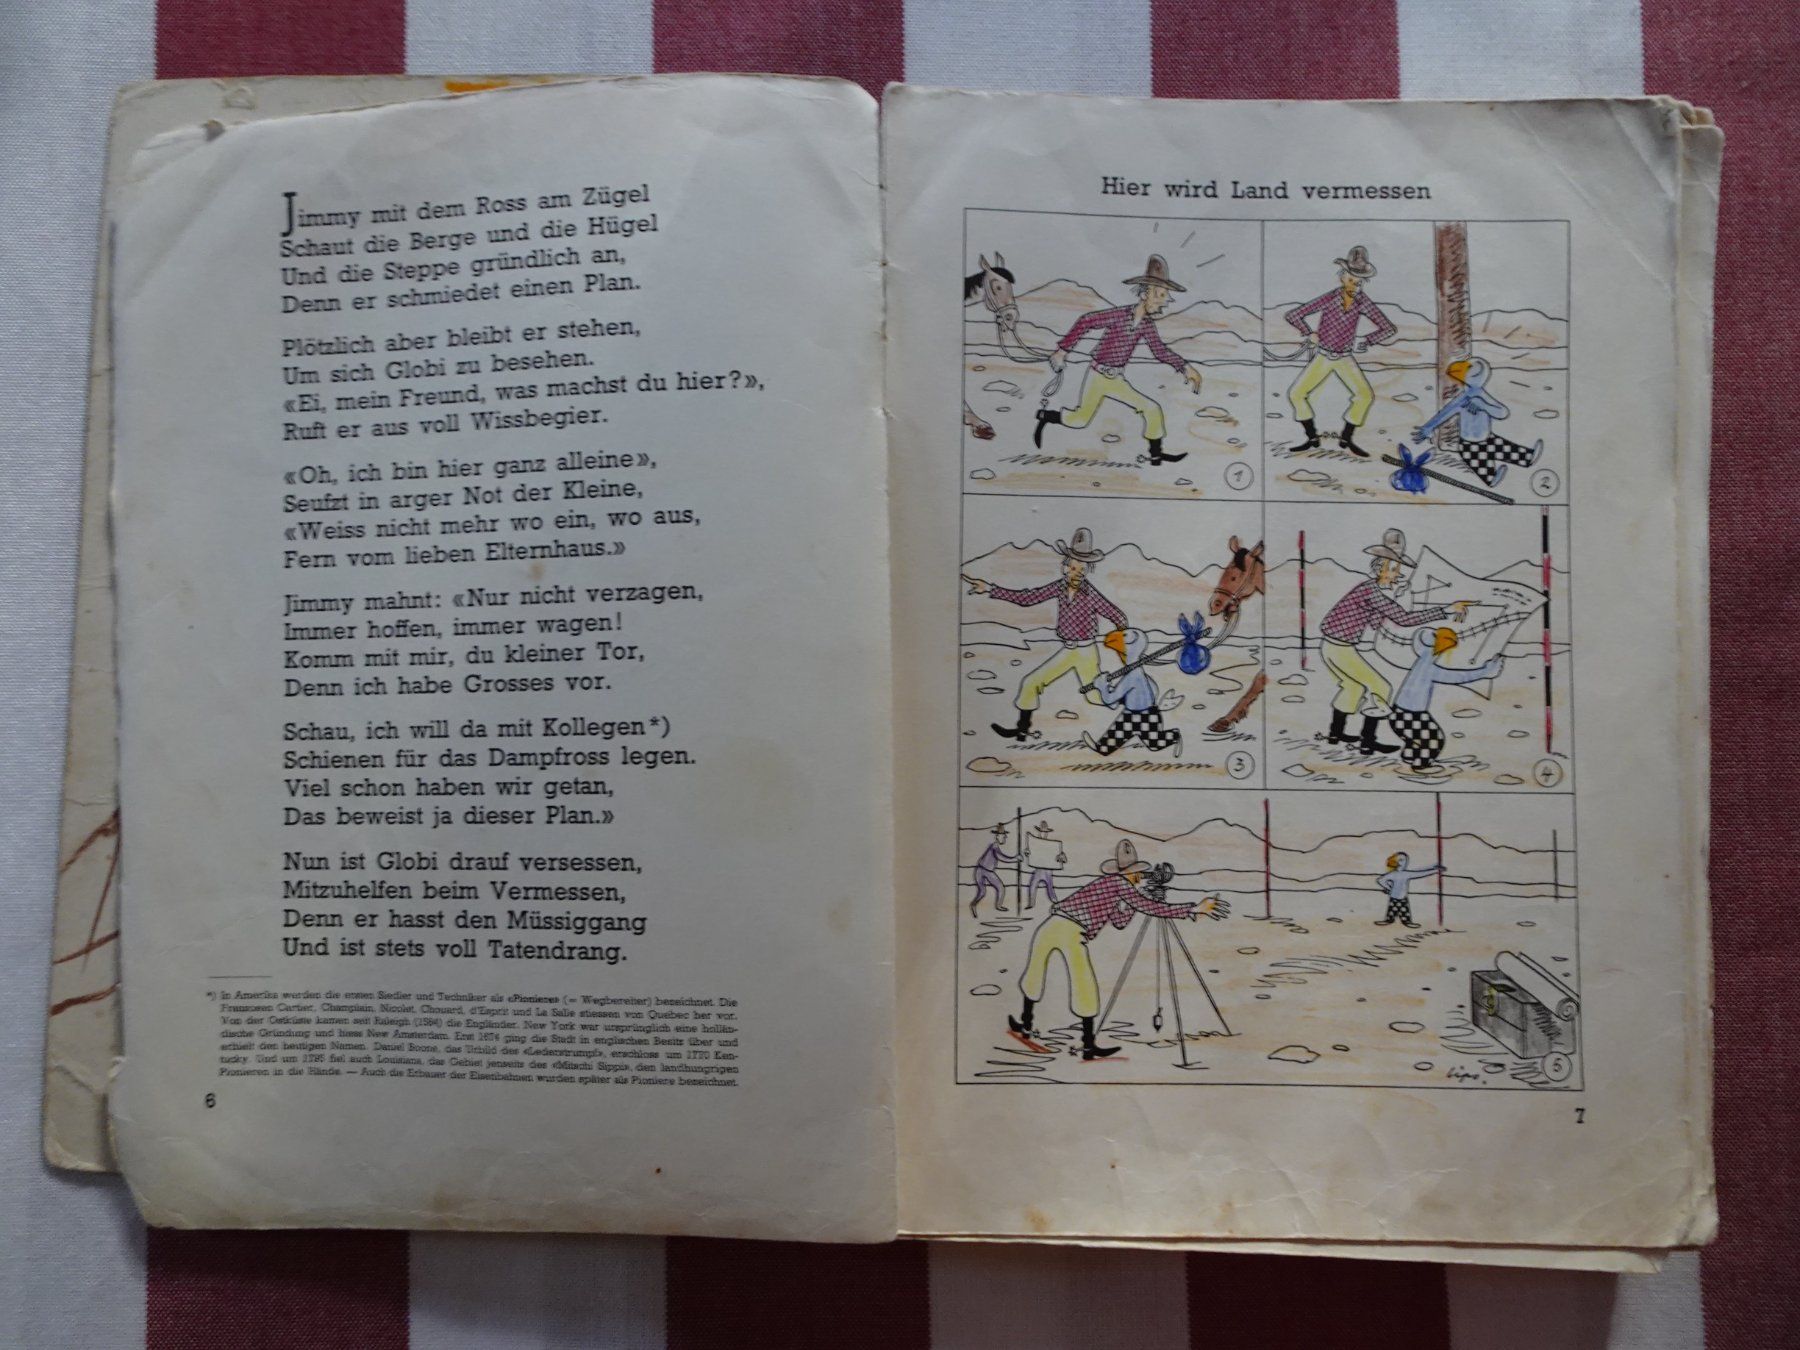 Jimmy mit dem Ross am Zügel
Schaut die Berge und die Hügel
Und die Steppe gründlich an,
Denn er schmiedet einen Plan.
Plötzlich aber bleibt er stehen,
Um sich Globi zu besehen.
«Ei, mein Freund, was machst du hier?»,
Ruft er aus voll Wissbegier.
«Oh, ich bin hier ganz alleine»,
Seufzt in arger Not der Kleine,
«Weiss nicht mehr wo ein, wo aus,
Fern vom lieben Elternhaus.»
Jimmy mahnt: «Nur nicht verzagen,
Immer hoffen, immer wagen!
Komm mit mir, du kleiner Tor,
Denn ich habe Grosses vor.
Schau, ich will da mit Kollegen*)
Schienen für das Dampfross legen.
Viel schon haben wir getan,
Das beweist ja dieser Plan.»
Nun ist Globi drauf versessen,
Mitzuhelfen beim Vermessen,
Denn er hasst den Müssiggang
Und ist stets voll Tatendrang.
*) In Amerika werden die ersten Siedler und Techniker als «Pioniere» (= Wegbereiter) bezeichnet. Die
Franzosen Cartier, Champlain, Nicolet, Chouard, d'Esprit und La Salle stiessen von Quebec her vor.
Von der Ostküste kamen seit Raleigh (1584) die Engländer. New York war ursprünglich eine hollän-
dische Gründung und hiess New Amsterdam. Erst 1674 ging die Stadt in englischen Besitz über und
erhielt den heutigen Namen. Daniel Boone, das Urbild des «Lederstrumpf», erschloss um 1770 Ken-
tucky. Und um 1795 fiel auch Louisiana, das Gebiet jenseits des «Mitschi Sippi», den landhungrigen
Pionieren in die Hände. — Auch die Erbauer der Eisenbahnen wurden später als Pioniere bezeichnet.
6
Hier wird Land vermessen
1
2
3
4
5
Lips.
7